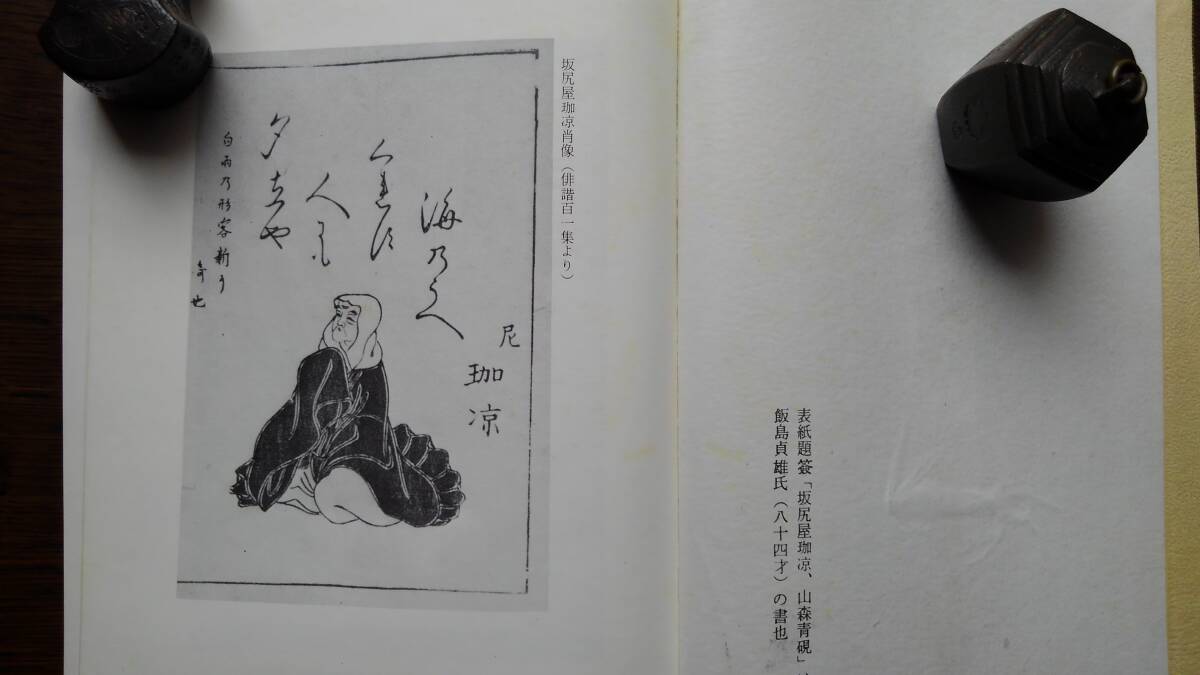 表紙題簽「坂尻屋珈凉、山森青硯」
飯島貞雄氏（八十四才）の書也
坂尻屋珈凉肖像（俳諧百一集より）
尼
珈凉
海乃うへ
人
夕立や
白雨乃形容新
奇也